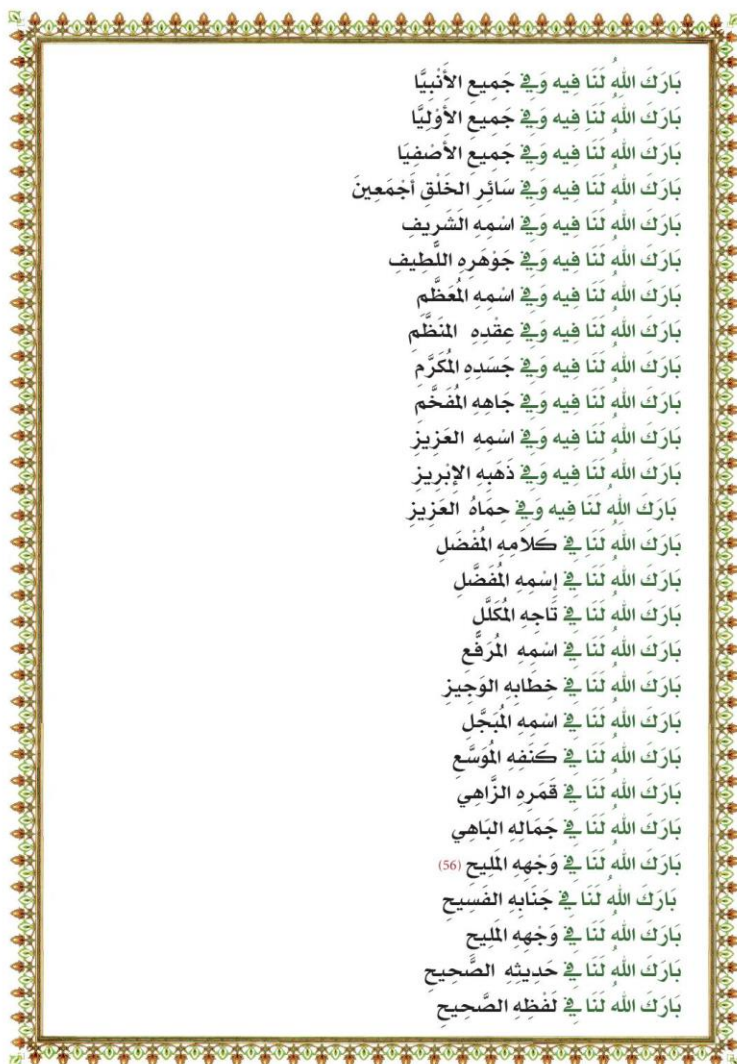 بَارَكَ اللهُ لَنَا فِيه وَفِي جَمِيعِ الأَنْبِيَّا
بَارَكَ اللهُ لَنَا فِيه وَفِي جَمِيعِ الأَوْلِيَّا
بَارَكَ اللهُ لَنَا فِيه وَفِي جَمِيعِ الأَصْفِيَا
بَارَكَ اللهُ لَنَا فِيه وَفِي سَائِرِ الخَلْقِ أَجْمَعِينَ
بَارَكَ اللهُ لَنَا فِيه وَفِي اسْمِهِ الشَرِيفِ
بَارَكَ اللهُ لَنَا فِيه وَفِي جَوْهَرِهِ اللَّطِيفِ
بَارَكَ اللهُ لَنَا فِيه وَفِي اسْمِهِ المُعَظَّمِ
بَارَكَ اللهُ لَنَا فِيه وَفِي عِقْدِهِ المُنَظَّمِ
بَارَكَ اللهُ لَنَا فِيه وَفِي جَسَدِهِ المُكَرَّمِ
بَارَكَ اللهُ لَنَا فِيه وَفِي جَاهِهِ المُفَخَّمِ
بَارَكَ اللهُ لَنَا فِيه وَفِي اسْمِهِ العَزِيزِ
بَارَكَ اللهُ لَنَا فِيه وَفِي ذَهَبِهِ الإِبْرِيزِ
بَارَكَ اللهُ لَنَا فِيه وَفِي حِمَاهُ العَزِيزِ
بَارَكَ اللهُ لَنَا فِي كَلاَمِهِ المُفْضَلِ
بَارَكَ اللهُ لَنَا فِي إسْمِهِ المُفَضَّلِ
بَارَكَ اللهُ لَنَا فِي تَاجِهِ المُكَلَّلِ
بَارَكَ اللهُ لَنَا فِي اسْمِهِ المُرَفَّعِ
بَارَكَ اللهُ لَنَا فِي خِطَابِهِ الوَجِيزِ
بَارَكَ اللهُ لَنَا فِي اسْمِهِ المُبَجَّلِ
بَارَكَ اللهُ لَنَا فِي كَنَفِهِ المُوَسَّعِ
بَارَكَ اللهُ لَنَا فِي قَمَرِهِ الزَّاهِي
بَارَكَ اللهُ لَنَا فِي جَمَالِهِ البَاهِي
بَارَكَ اللهُ لَنَا فِي وَجْهِهِ المَلِيحِ (56)
بَارَكَ اللهُ لَنَا فِي جَنَابِهِ الفَسِيحِ
بَارَكَ اللهُ لَنَا فِي وَجْهِهِ المَلِيحِ
بَارَكَ اللهُ لَنَا فِي حَدِيثِهِ الصَّحِيحِ
بَارَكَ اللهُ لَنَا فِي لَفْظِهِ الصَّحِيحِ